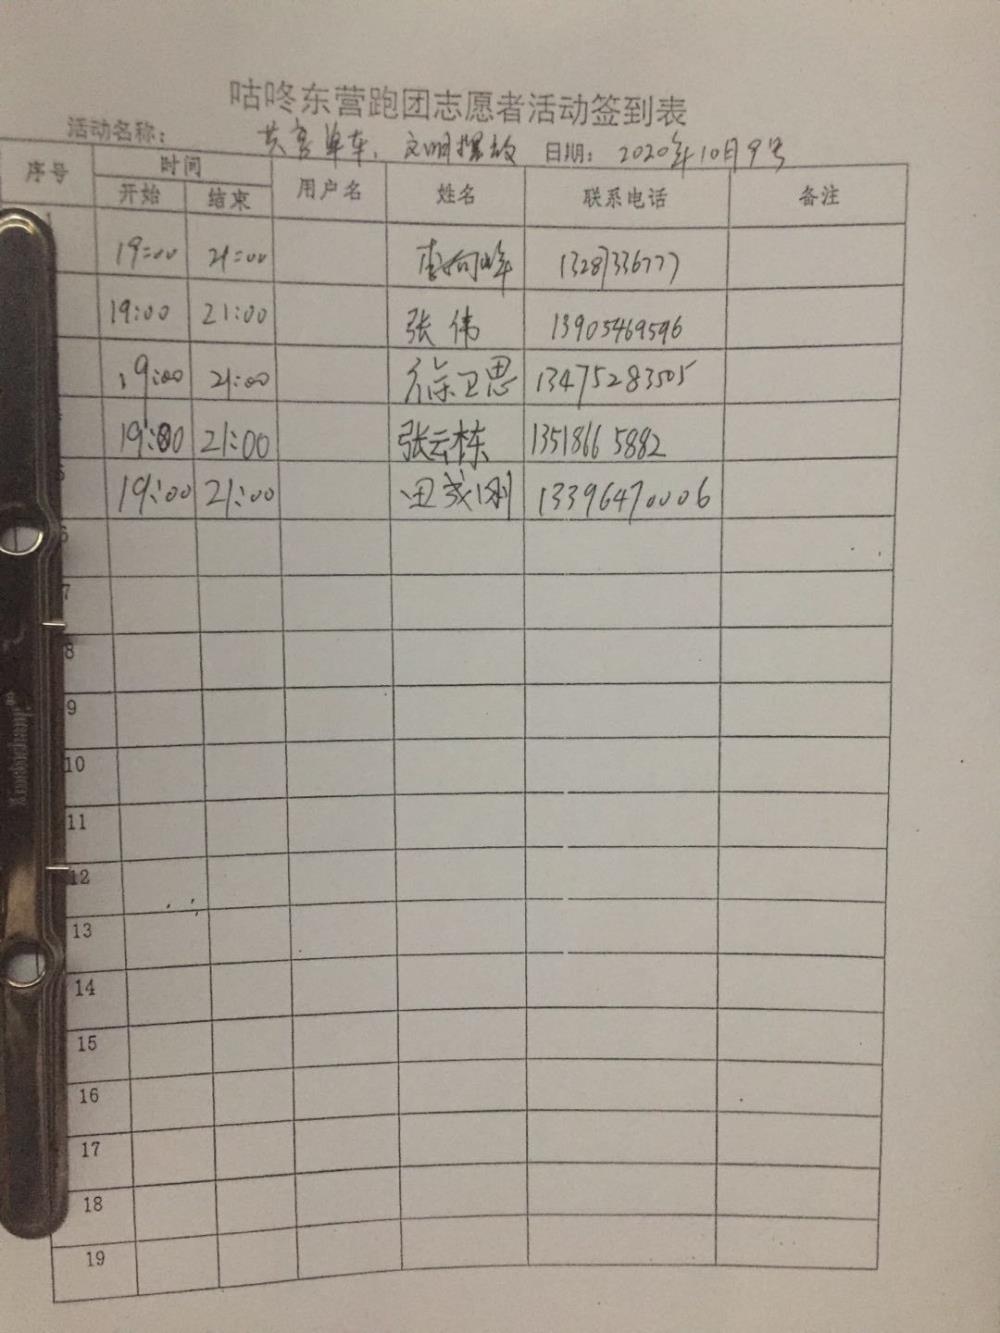 咕咚东营跑团志愿者活动签到表
活动名称: 共享单车,文明摆放 日期: 2020年10月9号
序号 时间 用户名 姓名 联系电话 备注
开始 结束
19:00 21:00 李向峰 13287336777
19:00 21:00 张伟 13905469596
19:00 21:00 徐卫思 13475283505
19:00 21:00 张云栋 13518665882
19:00 21:00 田成刚 13396470006
6
7
8
9
10
11
12
13
14
15
16
17
18
19